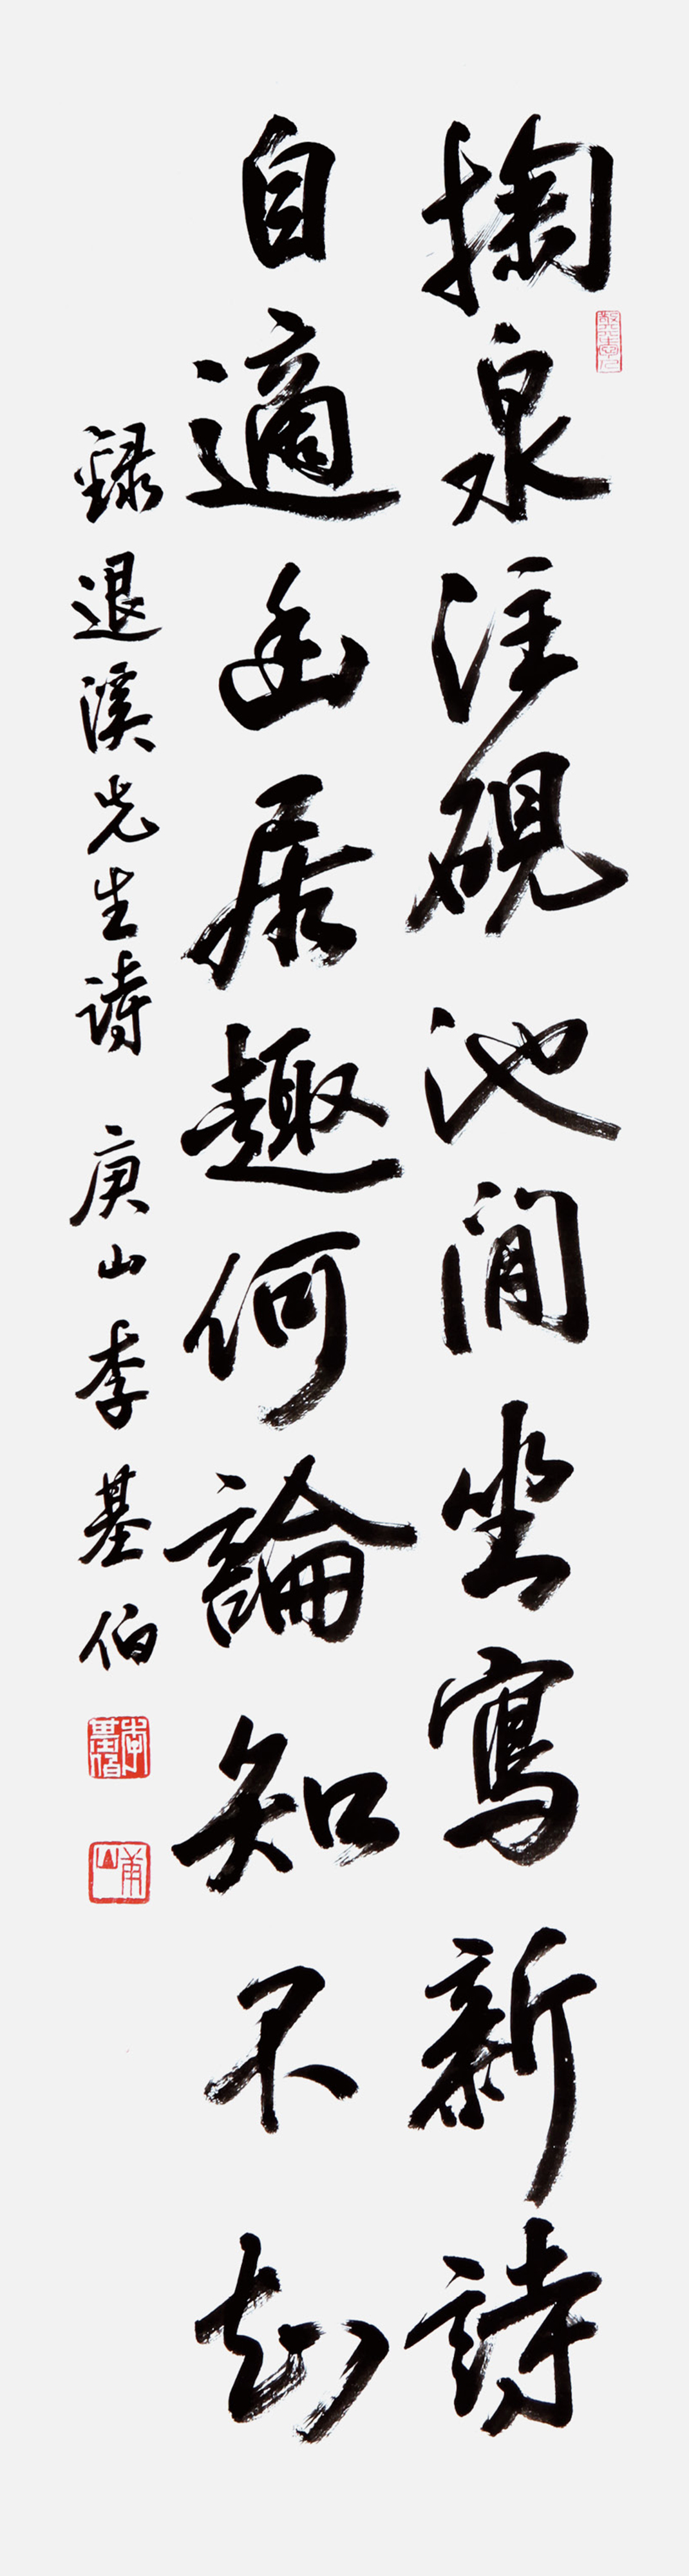 掬泉注硯池閒坐寫新詩
自適幽居趣何論知不知
錄退溪先生詩 庚山李基伯